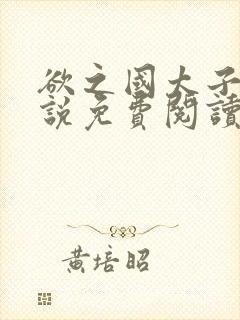 欲之國大子
說免費閱讀
黃培昭